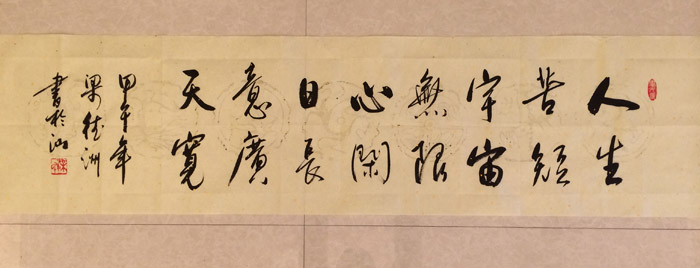 人生
苦短
宇宙
無限
心閑
日長
意廣
天寬
甲午年
梁德洲
書於汕